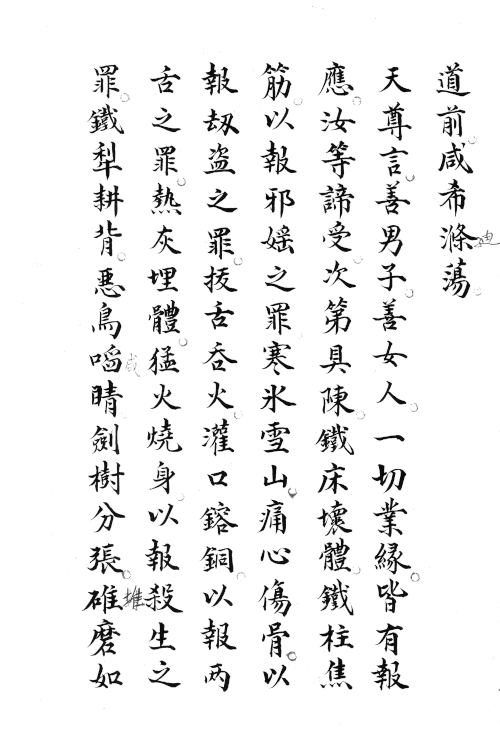 道前咸希滌蕩
天尊言善男子善女人一切業緣皆有報
應汝等諦受次第具陳鐵床壞體鐵柱焦
筋以報邪婬之罪寒氷雪山痛心傷骨以
報劫盜之罪拔舌吞火灌口鎔銅以報兩
舌之罪熱灰埋體猛火燒身以報殺生之
罪鐵犁耕背惡鳥㗖晴劍樹分張碓磨如